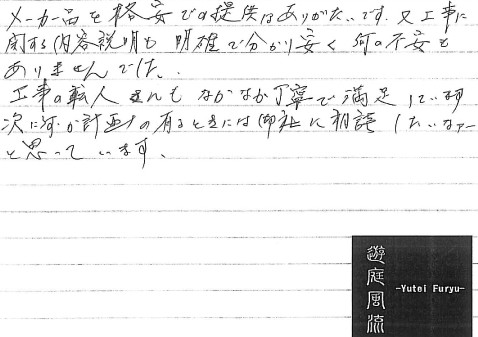 メーカー品を格安での提供はありがたいです。又工事に
関する内容説明も明確で分かり安く何の不安も
ありませんでした。
工事の転人さんもなかなか丁寧で満足しています
次に何か計画の有るときには御社に相談したいなァー
と思っています。
遊庭風流
-Yutei Furyu-